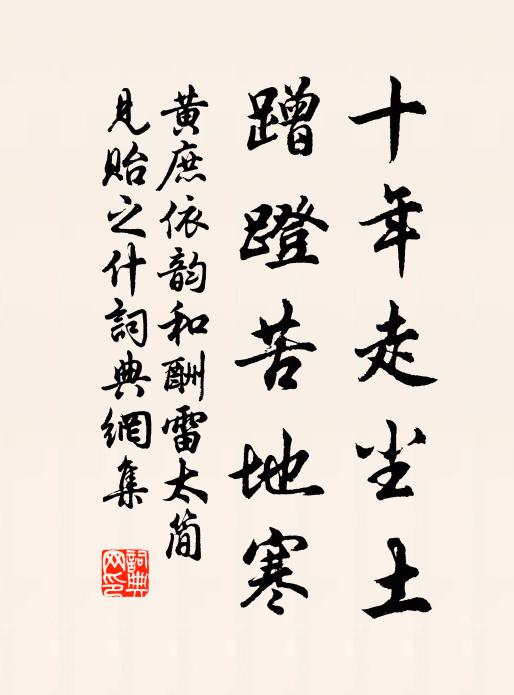 十年走尘土
蹭蹬苦地寒
黄庶依韵和酬雷太简
见贻之什詞典網集
詞典网印